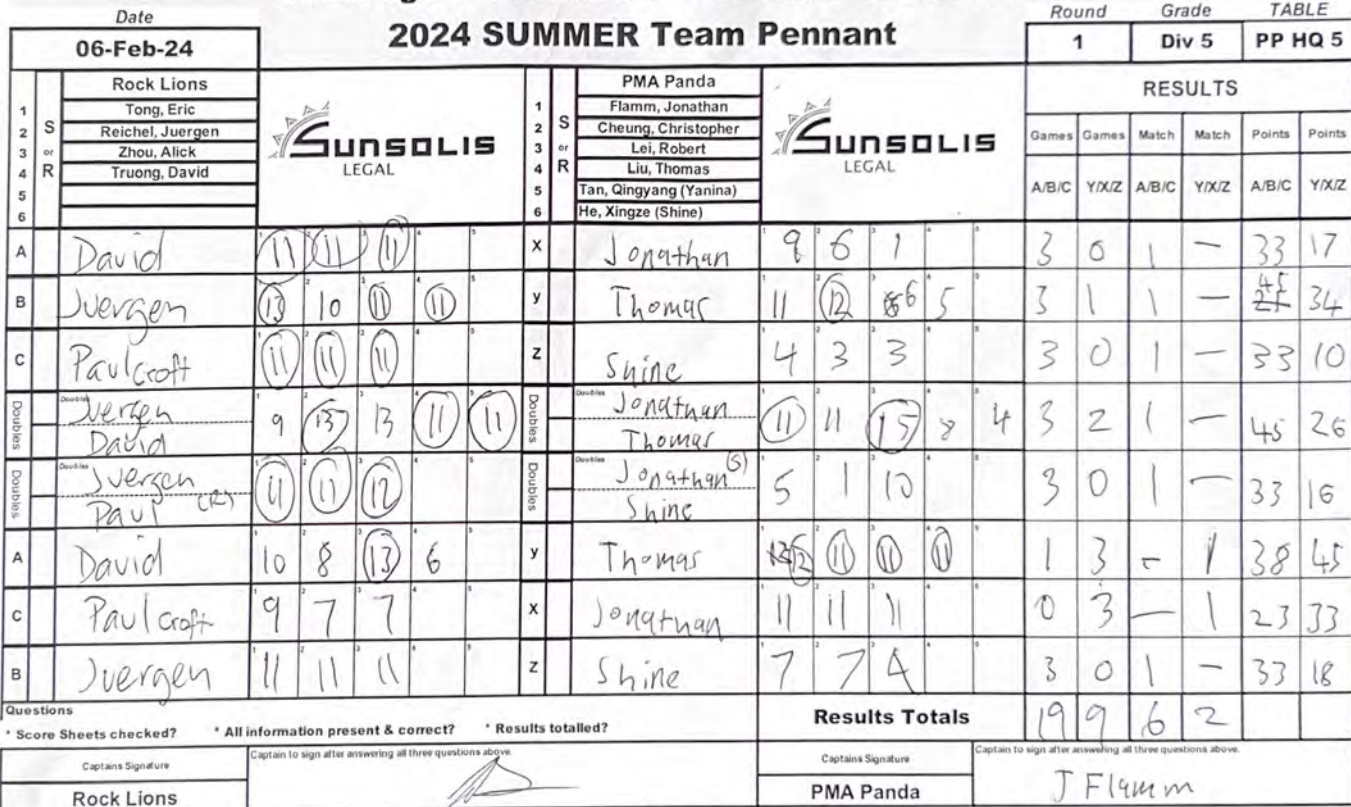 Date
06-Feb-24
2024 SUMMER Team Pennant
Round Grade TABLE
1 Div 5 PP HQ 5
1 2 3 4 5 6
S or R
Rock Lions
Tong, Eric
Reichel, Juergen
Zhou, Alick
Truong, David
SUNSOLIS
LEGAL
1 2 3 4 5 6
S or R
PMA Panda
Flamm, Jonathan
Cheung, Christopher
Lei, Robert
Liu, Thomas
Tan, Qingyang (Yanina)
He, Xingze (Shine)
SUNSOLIS
LEGAL
RESULTS
Games Games Match Match Points Points
A/B/C Y/X/Z A/B/C Y/X/Z A/B/C Y/X/Z
A David 11 11 11 X Jonathan 9 6 1 3 0 1 - 33 17
B Juergen 13 10 11 11 y Thomas 11 12 6 5 3 1 1 - 45 34
C Paul Croft 11 11 11 Z Shine 4 3 3 3 0 1 - 33 10
Doubles Doubles Juergen 9 13 13 11 11 Doubles Doubles Jonathan 11 11 15 8 4 3 2 1 - 45 26
David Thomas
Doubles Doubles Juergen 11 11 12 Doubles Doubles Jonathan (S) 5 1 10 3 0 1 - 33 16
Paul (R) Shine
A David 10 8 13 6 y Thomas 12 11 11 11 1 3 - 1 38 45
C Paul Croft 9 7 7 X Jonathan 11 11 11 0 3 - 1 23 33
B Juergen 11 11 11 Z Shine 7 7 4 3 0 1 - 33 18
Questions
* Score Sheets checked? * All information present & correct? * Results totalled?
Results Totals 19 9 6 2
Captains Signature
Captain to sign after answering all three questions above.
Rock Lions
Captains Signature
Captain to sign after answering all three questions above.
PMA Panda
J Flamm